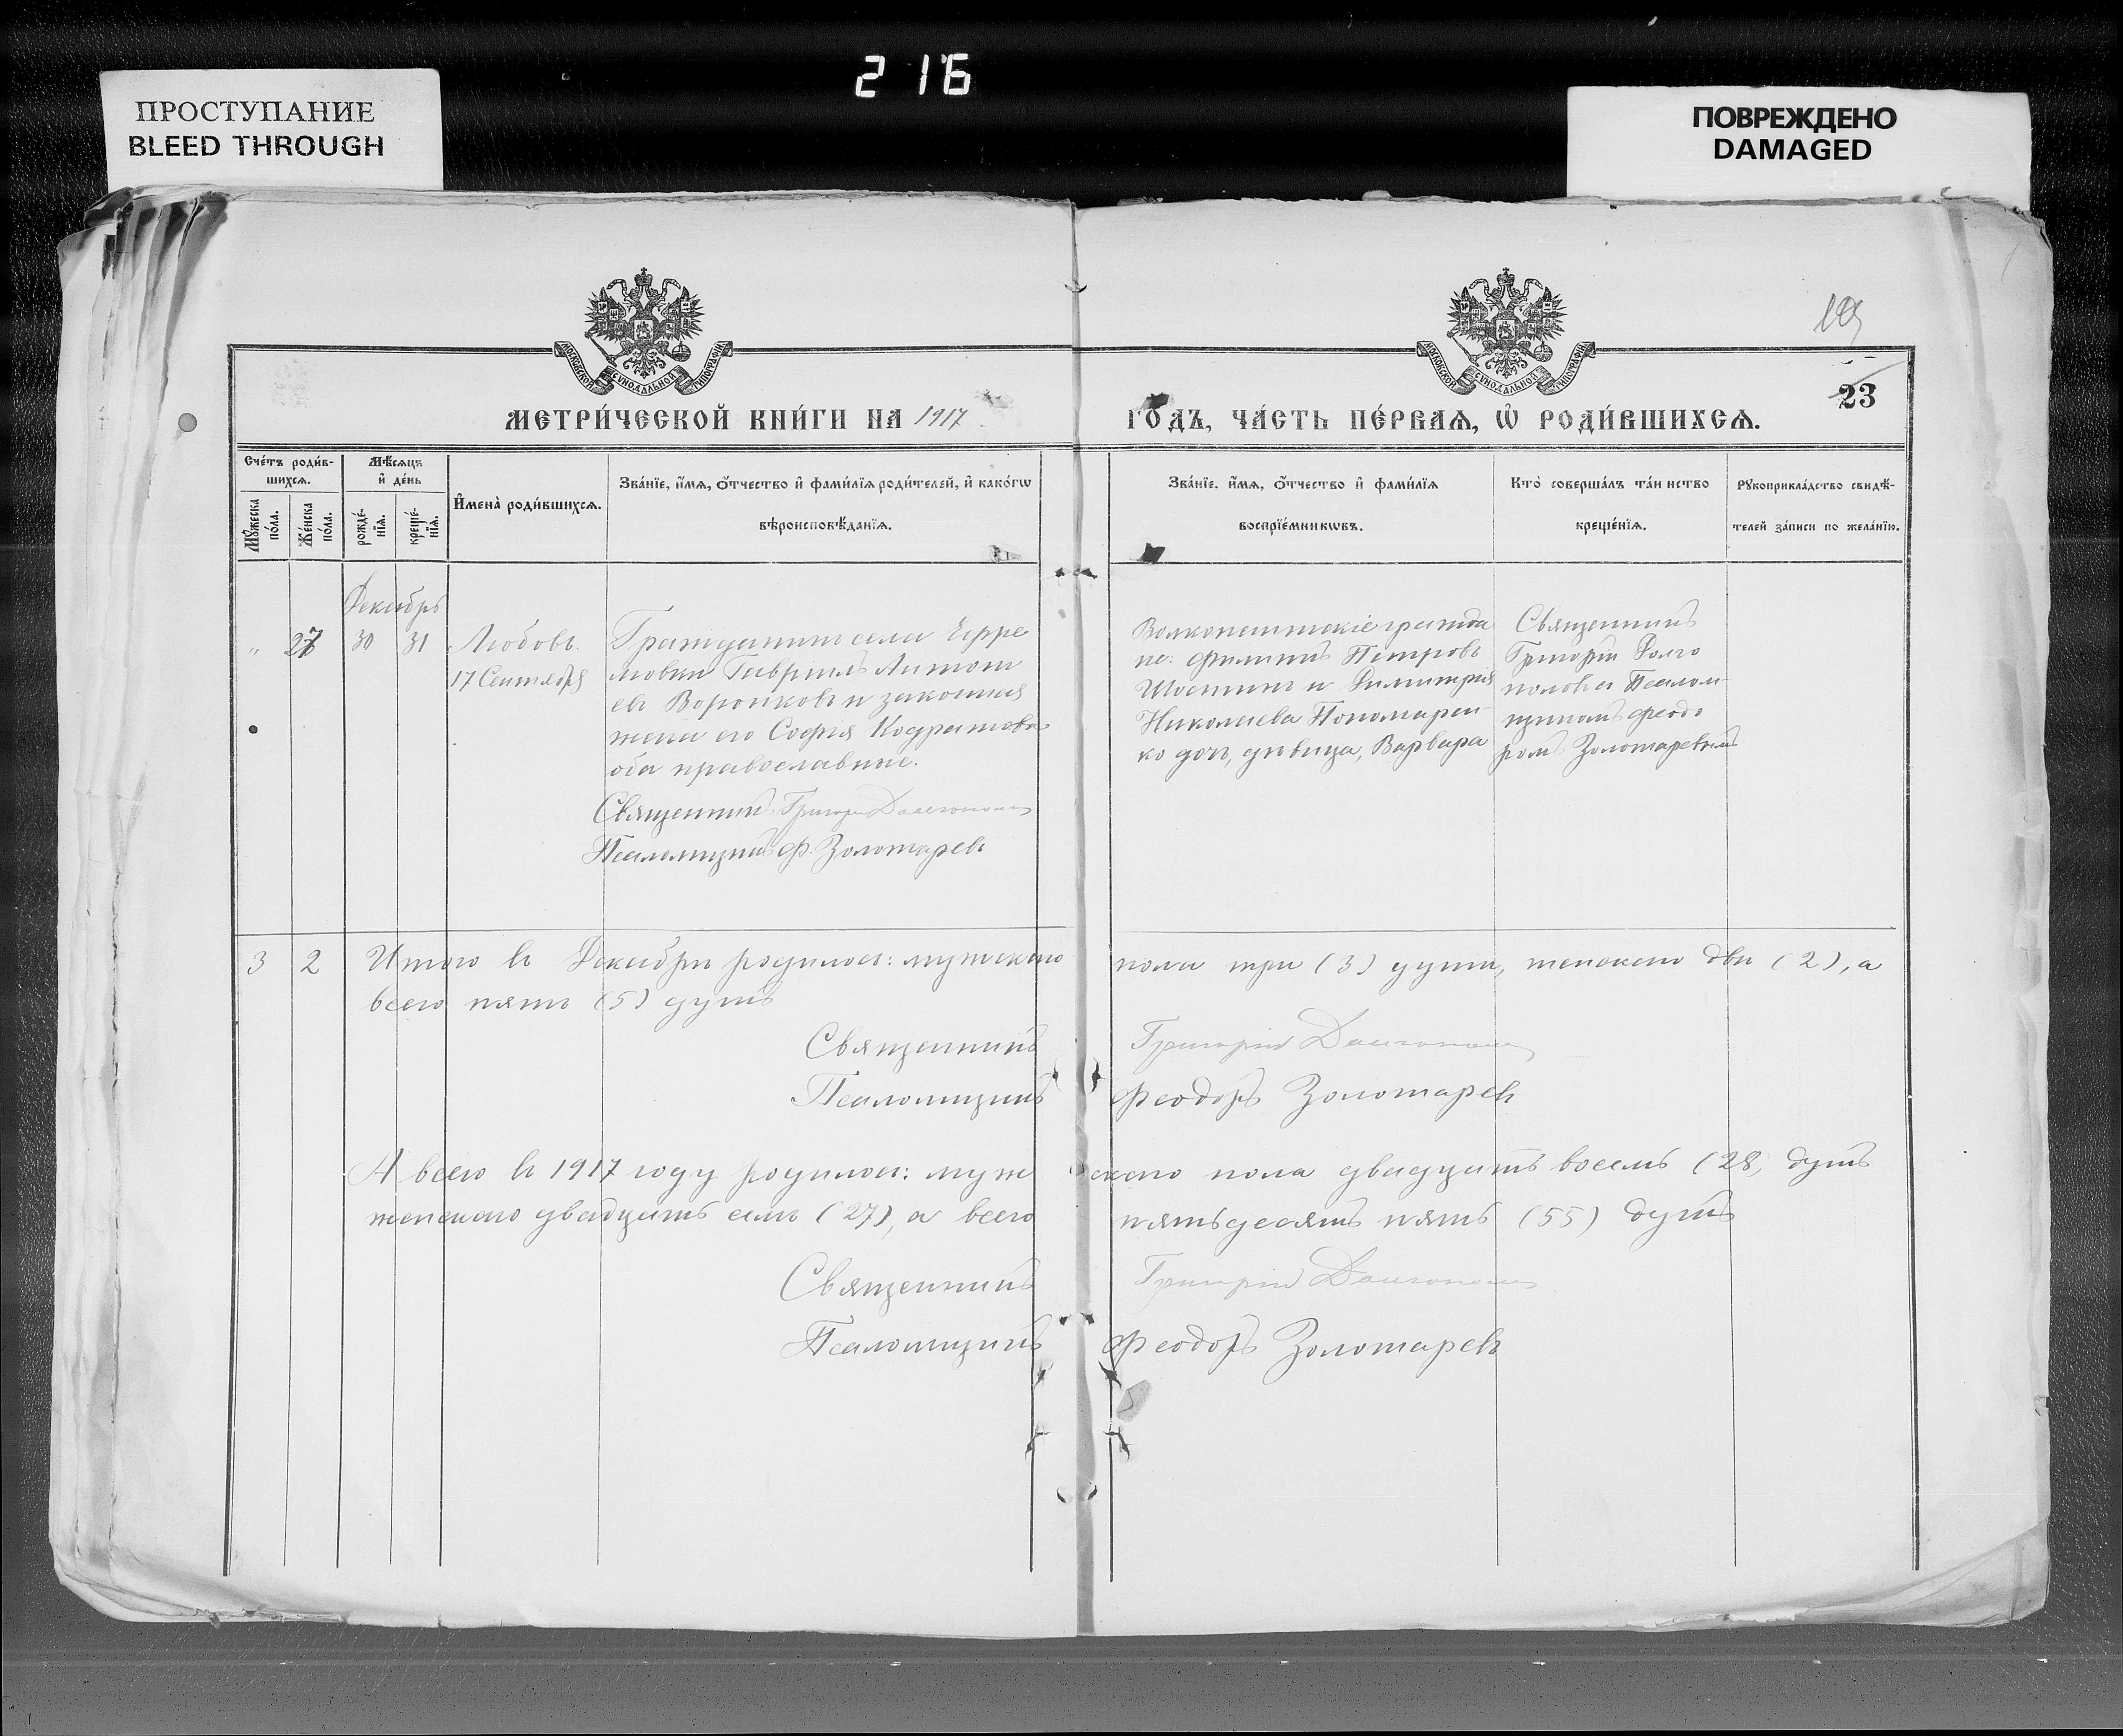 216
ПРОСТУПАНИЕ
BLEED THROUGH
ПОВРЕЖДЕНО
DAMAGED
МОСКОВСКОЙ СѴНОДАЛЬНОЙ ТИПОГРАФІИ
МОСКОВСКОЙ СѴНОДАЛЬНОЙ ТИПОГРАФІИ
23
МЕТРИ́ЧЕСКОЙ КНИ́ГИ НА 1917
ГО́ДЪ, ЧА́СТЬ ПЕ́РВАѦ, Ѡ҆ РОДИ́ВШИХСѦ.
Сче́тъ роди́в-
шихсѧ.
Мꙋ́жеска по́ла.
Же́нска по́ла.
Мѣ́сѧцъ
и҆ де́нь
рожде́-нїѧ.
креще́-нїѧ.
И҆мена̀ роди́вшихсѧ.
Зва́нїе, и҆́мѧ, ѻ҆́тчество и҆ фами́лїѧ роди́телей, и҆ како́гѡ
вѣроисповѣ́данїѧ.
Зва́нїе, и҆́мѧ, ѻ҆́тчество и҆ фами́лїѧ
воспрїе́мникѡвъ.
Кто̀ соверша́лъ та́инство
креще́нїѧ.
Рꙋкоприкла́дство свидѣ́-
телей за́писи по жела́нїю.
Декабрь
" 27 30 31
Любовь
17 Сентября
Гражданинъ села Ефре
мовки Гавріилъ Антон
евъ Воронковъ и законная
жена его Софія Кодратова
оба православные.
Священникъ Григорій Долгополовъ
Псаломщикъ Ѳ. Золотаревъ
гражда
не: Филиппъ Петровъ
и Димитрія
Николаева Пономарен
ко дочь, дѣвица, Варвара
Священникъ
Григорій Долго
половъ съ Псалом
щикомъ Ѳеодо
ромъ Золотаревымъ
3 2 Итого въ Декабрѣ родилось: мужского пола три (3) души, женского двѣ (2), а
всего пять (5) душъ
Священникъ Григорій Долгополовъ
Псаломщикъ Ѳеодоръ Золотаревъ
А всего въ 1917 году родилось: мужского пола двадцать восемь (28) душъ
женского двадцать семь (27), а всего пятьдесятъ пять (55) душъ
Священникъ Григорій Долгополовъ
Псаломщикъ Ѳеодоръ Золотаревъ